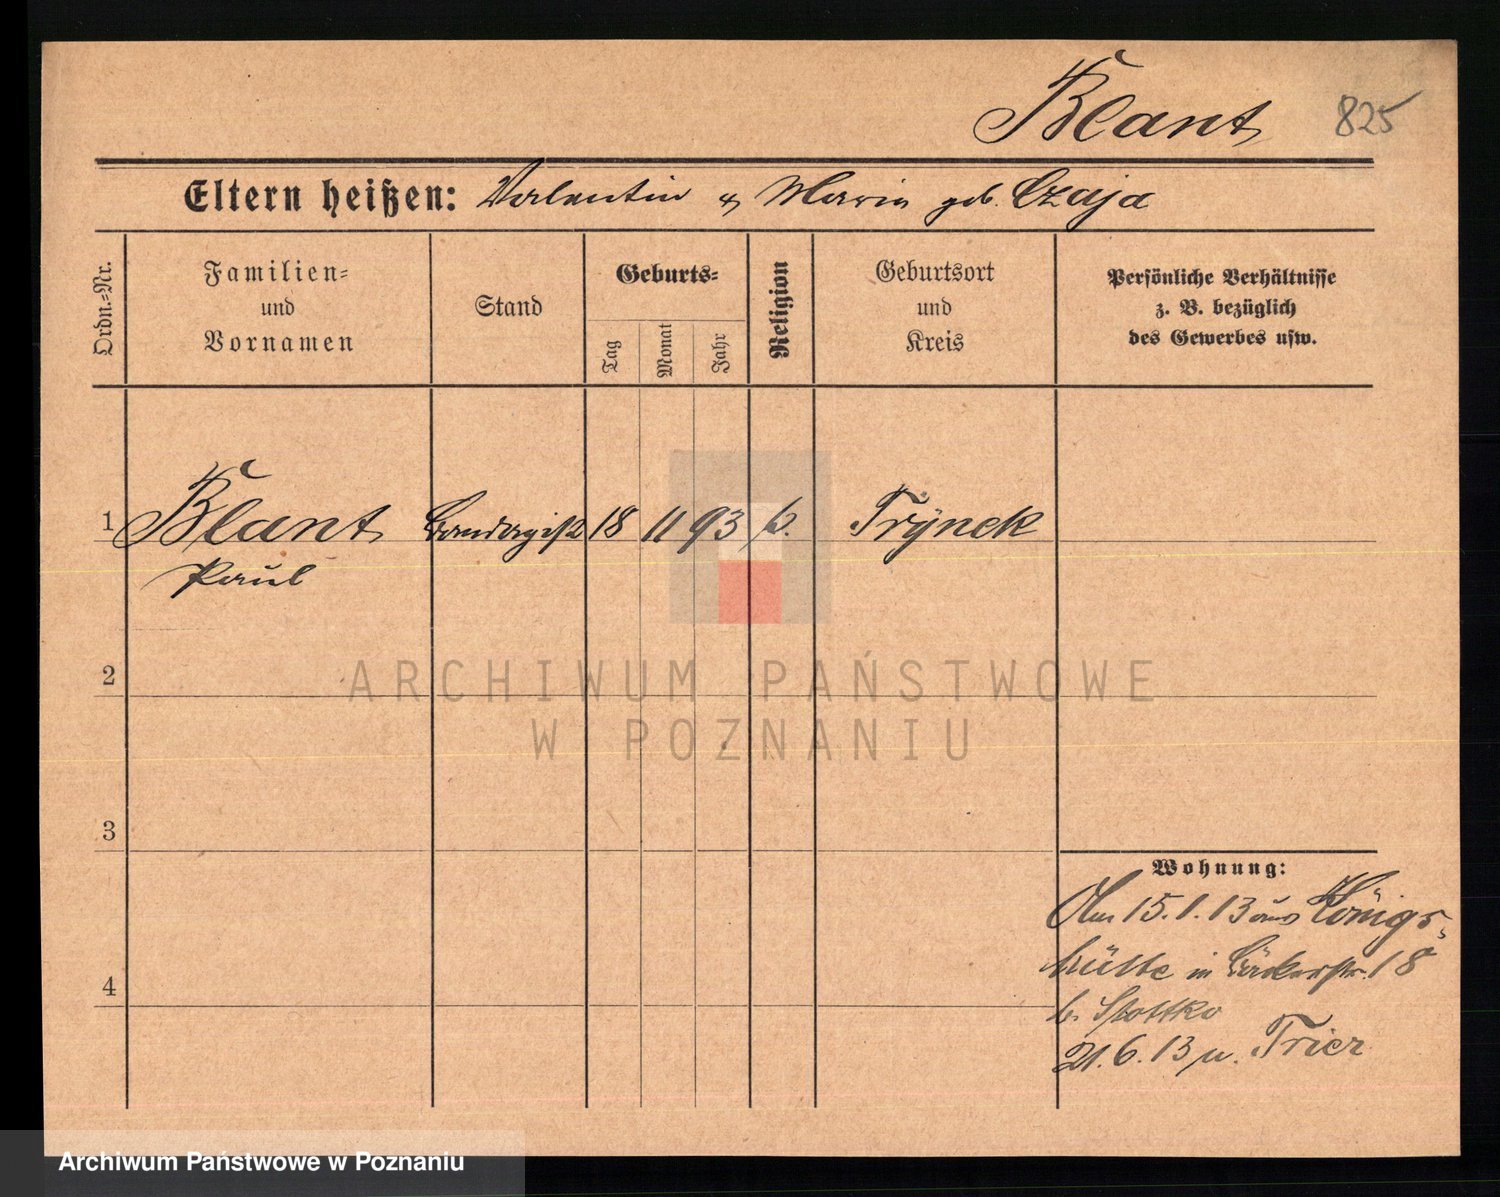 Blant 825
Eltern heißen: Valentin & Marie geb. Czaja
Ordn.=Nr.
Familien=
und
Vornamen
Stand
Geburts=
Tag
Monat
Jahr
Religion
Geburtsort
und
Kreis
Persönliche Verhältnisse
z. B. bezüglich
des Gewerbes usw.
1 Blant Bandagist 18 11 93 k. Trynek
Paul
2
3
4
Wohnung:
15.1.13 aus Königs-
hütte in Bäckerstr. 18
b. Stottko
21.6.13 n. Trier
ARCHIWUM PAŃSTWOWE
W POZNANIU
Archiwum Państwowe w Poznaniu